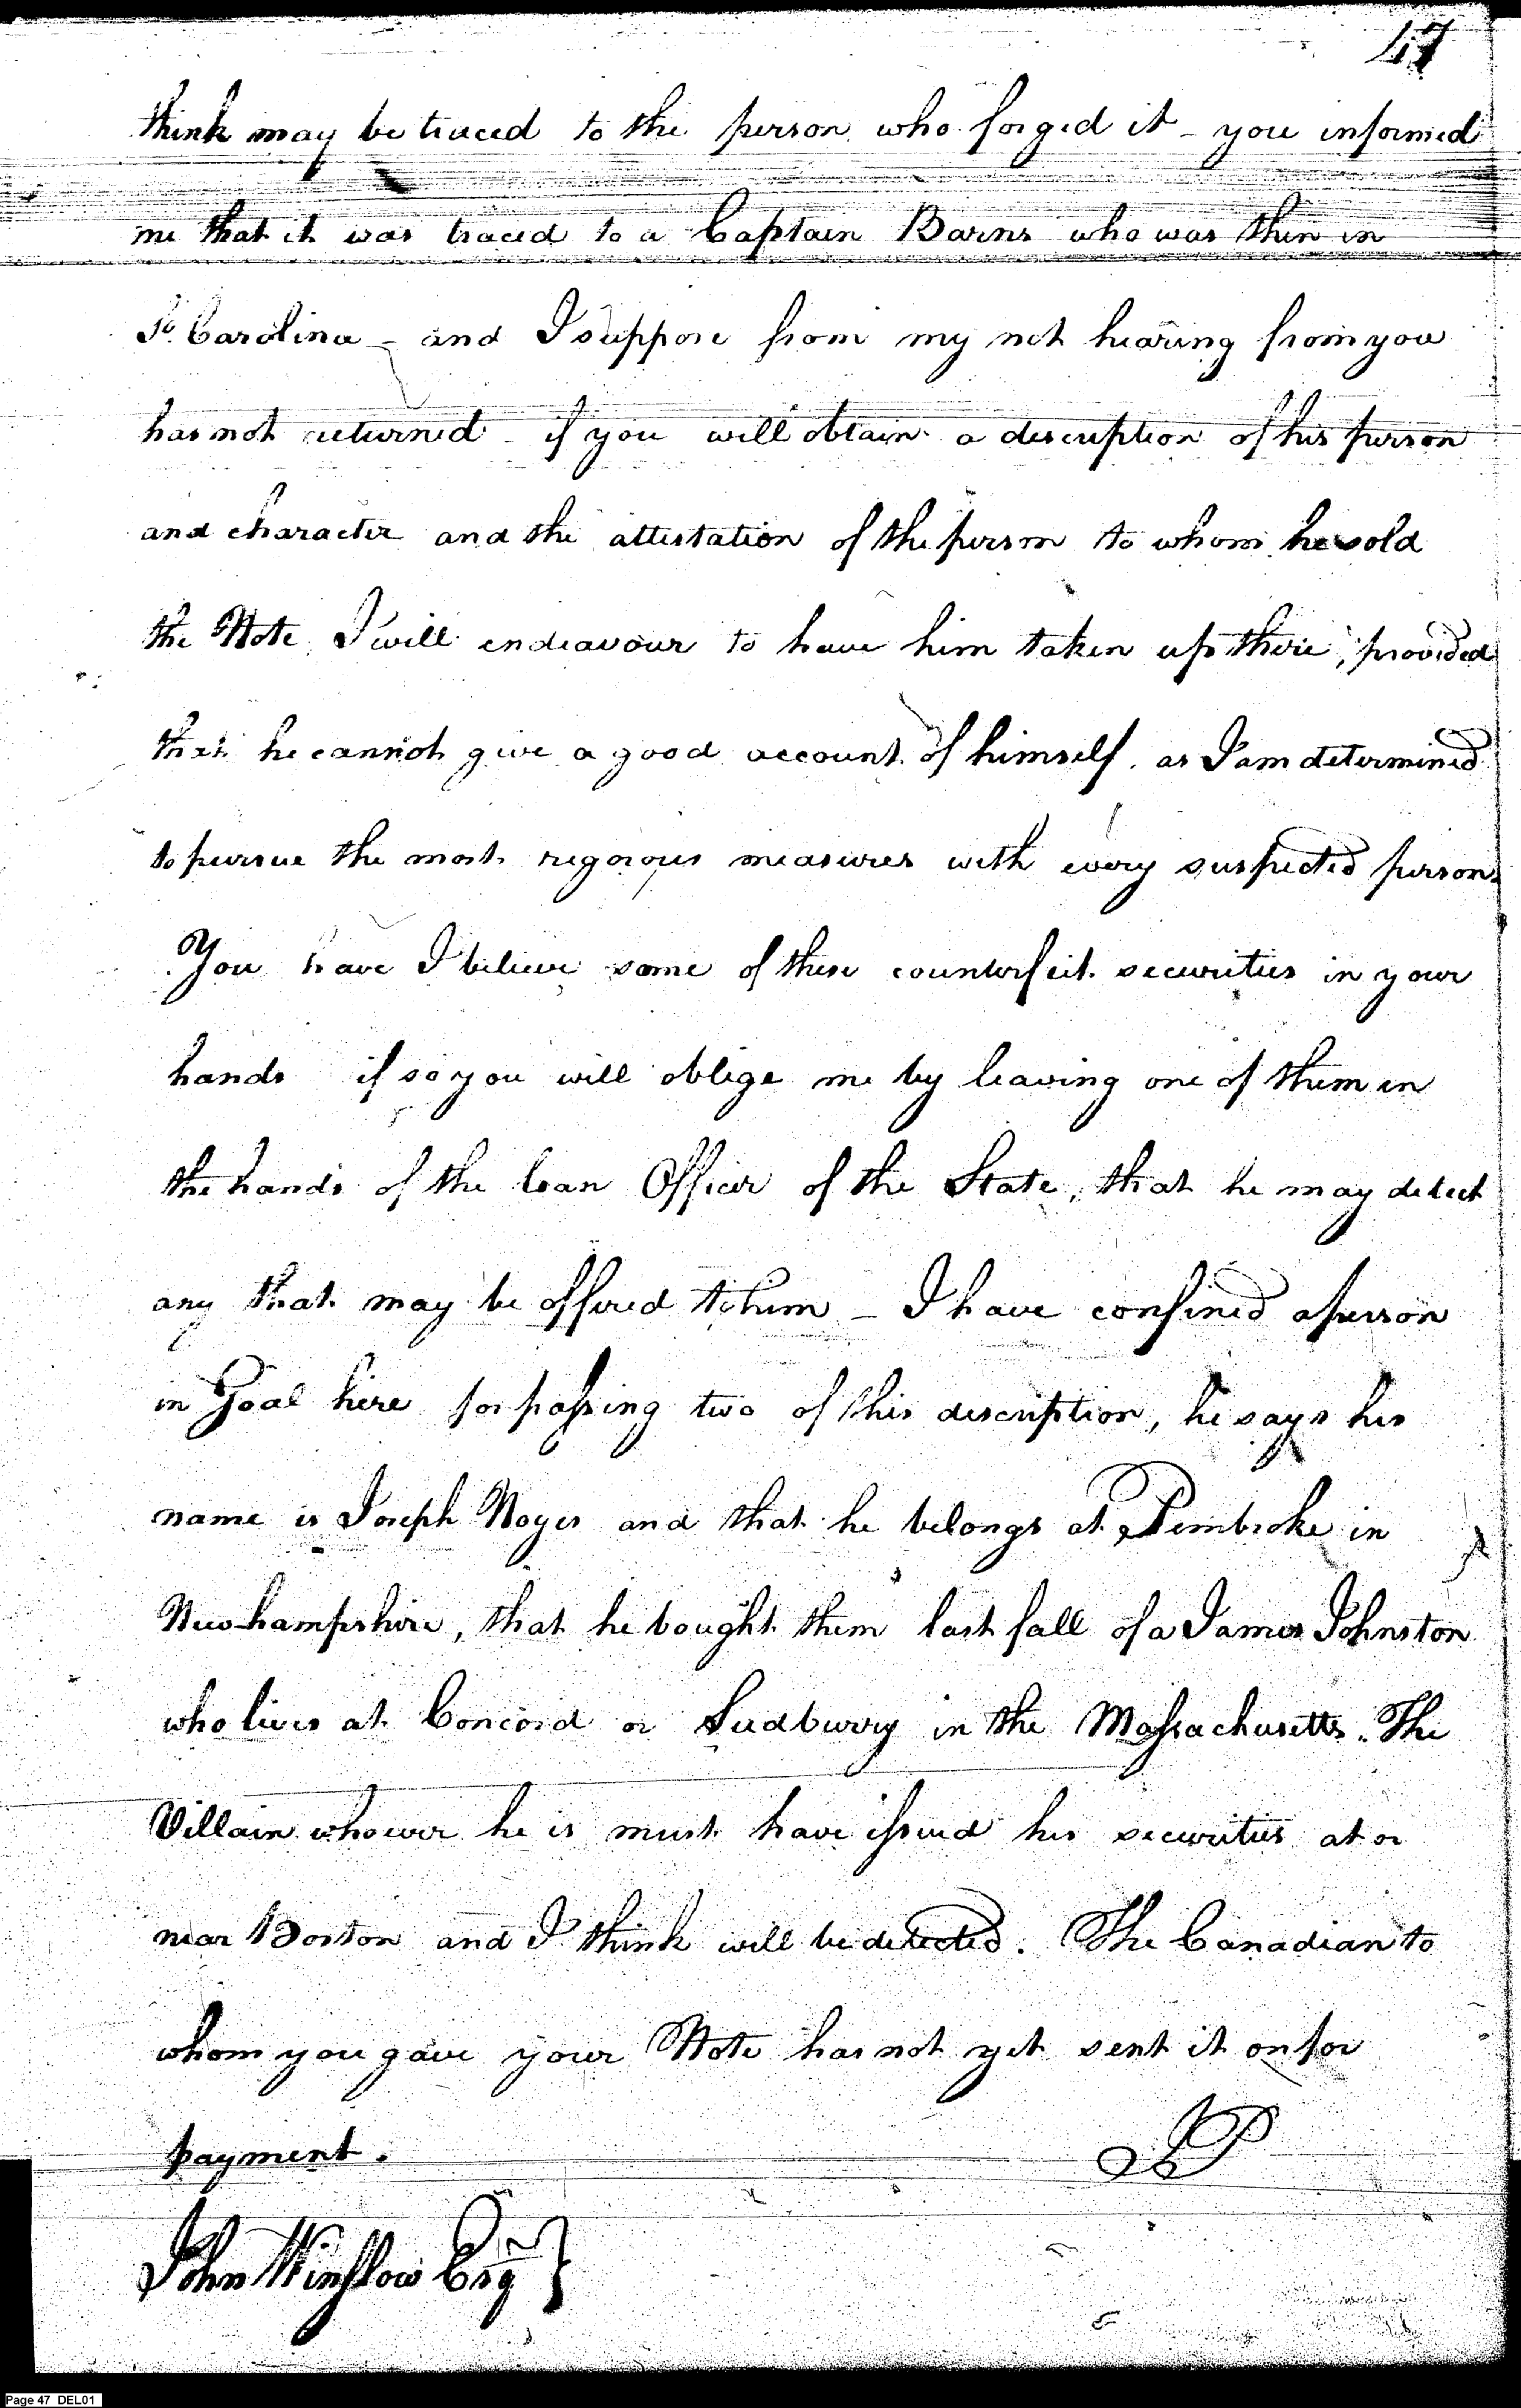 47
think may be traced to the person who forged it - you informed
me that it was traced to a Captain Barns who was then in
So. Carolina - and I suppose from my not hearing from you
has not returned - if you will obtain a description of his person
and character and the attestation of the person to whom he sold
the Note I will endeavour to have him taken up there, provided
that he cannot give a good account of himself. as I am determined
to pursue the most rigorous measures with every suspected person.
You have I believe some of these counterfeit securities in your
hands if so you will oblige me by leaving one of them in
the hands of the loan Officer of the State, that he may detect
any that may be offered to him - I have confined a person
in Goal here for passing two of this description, he says his
name is Joseph Noyes and that he belongs at Pembroke in
Newhampshire, that he bought them last fall of a James Johnston
who lives at Concord or Sudbury in the Massachusetts. The
Villain whoever he is must have issued his securities at or
near Boston and I think will be detected. The Canadian to
whom you gave your Note has not yet sent it on for
payment.
JP
John Winslow Esqr }
Page 47 DEL01